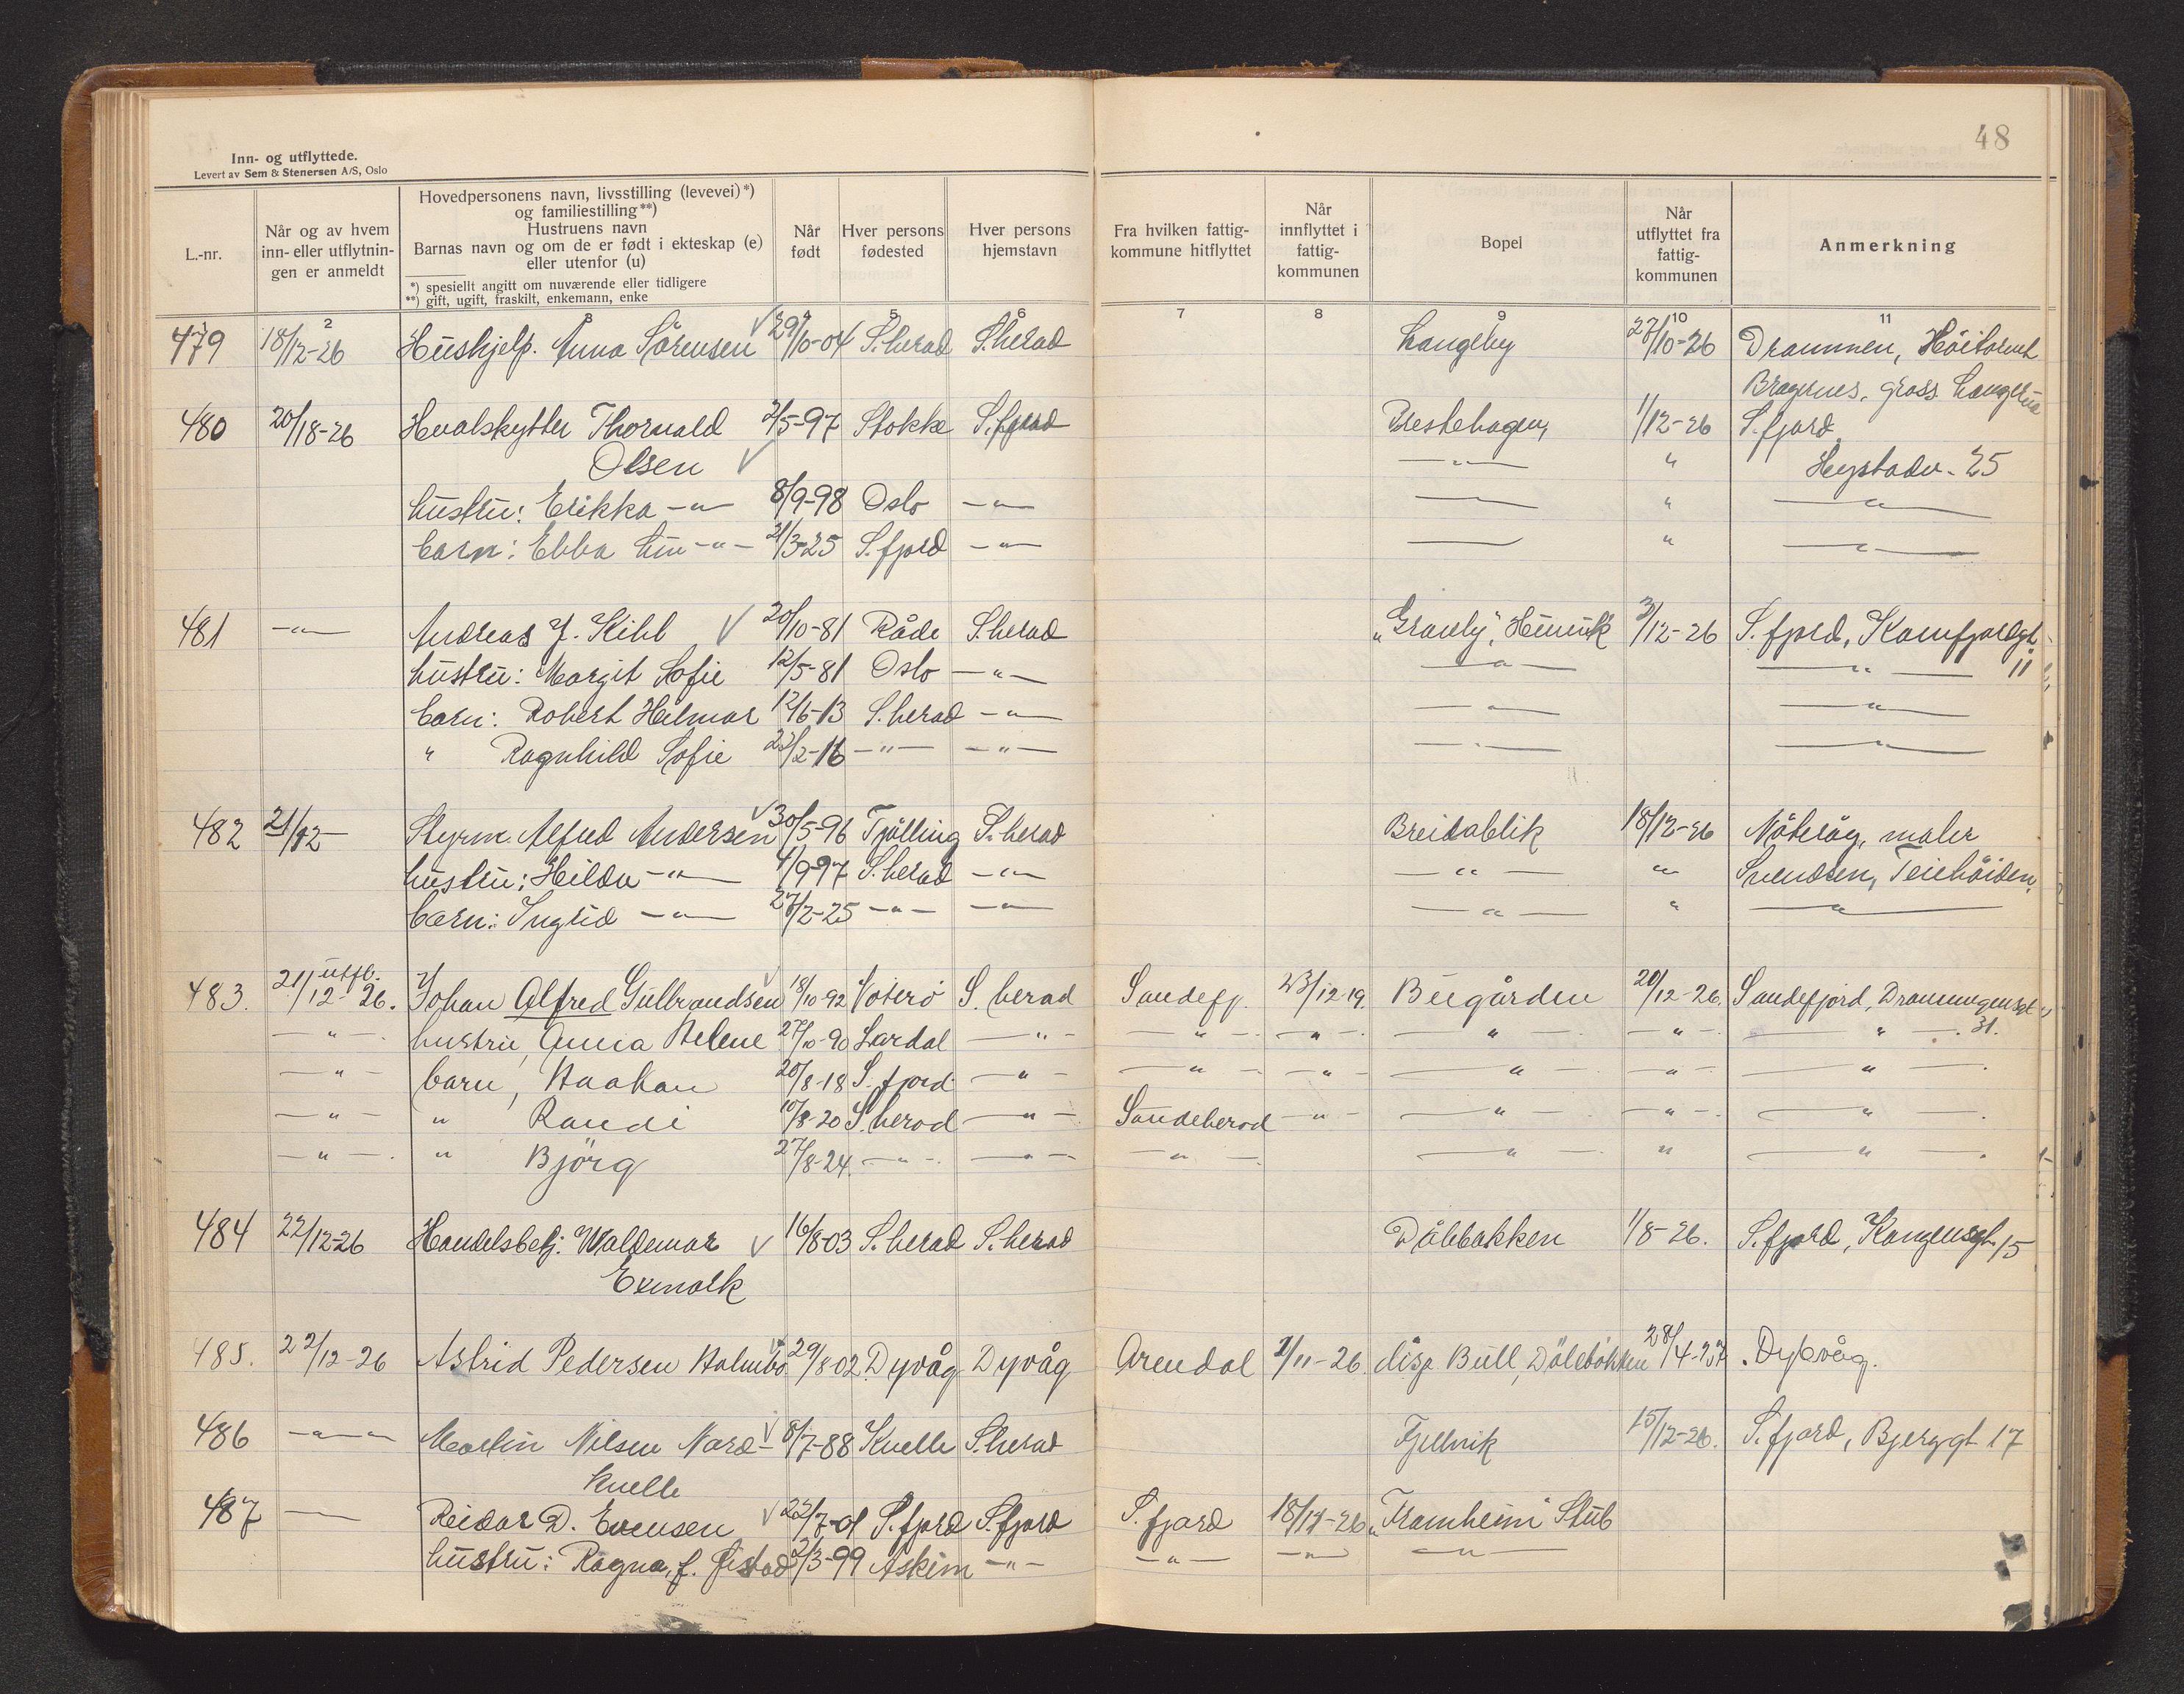 48
Inn- og utflyttede.
Levert av Sem & Stenersen A/S, Oslo
L.-nr.
Når og av hvem inn- eller utflytningen er anmeldt
Hovedpersonens navn, livsstilling (levevei)*)
og familiestilling**)
Hustruens navn
Barnas navn og om de er født i ekteskap (e)
eller utenfor (u)
*) spesiellt angitt om nuværende eller tidligere
**) gift, ugift, fraskilt, enkemann, enke
Når født
Hver persons fødested
Hver persons hjemstavn
Fra hvilken fattigkommune hitflyttet
Når innflyttet i fattigkommunen
Bopel
Når utflyttet fra fattigkommunen
Anmerkning
2 3 4 5 6 7 8 9 10 11
479 18/12-26 Hushjelp. Anna Sörensen √ 29/10-04 S.herad S.herad Langeby 27/10-26 Drammen,
Bragernes,
480 20/18-26 Hvalskytter Thorvald 2/5-97 Stokke S.fjord Prestehagen, 1/12-26 S.fjord
Olsen √ -"- " Hystadv. 25
hustru: Erikka -"- 8/9-98 Oslo -"- " -"-
barn: Ebba Liv -"- 21/3-25 S.fjord -"- " -"-
481 -"- Andreas J. Kihl √ 20/10-81 Råde S.herad „Granly", 3/12-26 S.fjord, Kamfjordgt.
hustru: Margit Sofie 12/5-81 Oslo -"- -"- -"- 11
barn: Robert Hilmar 12/6-13 S.herad -"- -"- -"-
" Ragnhild Sofie 23/2-16 -"- -"- -"- -"-
482 21/12- Styrm. Alfred Andersen √ 30/5-96 Tjölling S.herad Breidablik 18/12-26 Nöteröy, maler
hustru: Hilda -"- 4/9-97 S.herad -"- -"- " Svendsen, Teiehöiden,
barn: Ingrid -"- 27/2-25 -"- -"- -"- " -"-
483. 21/12-26. utfl. Johan Alfred Gulbrandsen √ 18/10-92 Ноterö S. herad Sandefj. 23/12-19. Bugården 20/12-26. Sandefjord, Dronningensgt.
-"- hustru, Anna Helene 27/10-90 Lardal -"- -"- -"- " -"- -"- 31.
-"- barn, Haakon 20/8-18 S. fjord. -"- -"- -"- -"- -"- -"-
-"- " Randi 10/8-20 S.herad -"- Sandeherad -"- -"- -"- -"-
-"- " Björg 27/8-24. -"- -"- -"- -"- " -"-
484 22/12-26 Handelsbetj. Waldemar √ 16/8-03 S.herad S.herad Dålebakken 1/8-26. S.fjord, Kongensgt. 15
Exmark
485. 22/12-26 Astrid Pedersen Holmbo. √ 29/8-02 Dyvåg Dyvåg Arendal 1/11-26. disp Bull, Dölebakken 28/4-27 Dybvåg.
486 -"- Martin Nilsen Nord- √ 8/7-88 Kvelle S.herad Fjellvik 15/12-26. S.fjord, Bjerggt 17
Kvelle
487 -"- Reidar D. Evensen √ 22/7-01 S.fjord S.fjord S.fjord 18/11-26 „Framheim" Stub
hustru: Ragna, f. Øistad 2/3-99 Askim -"- -"- -"- -"-